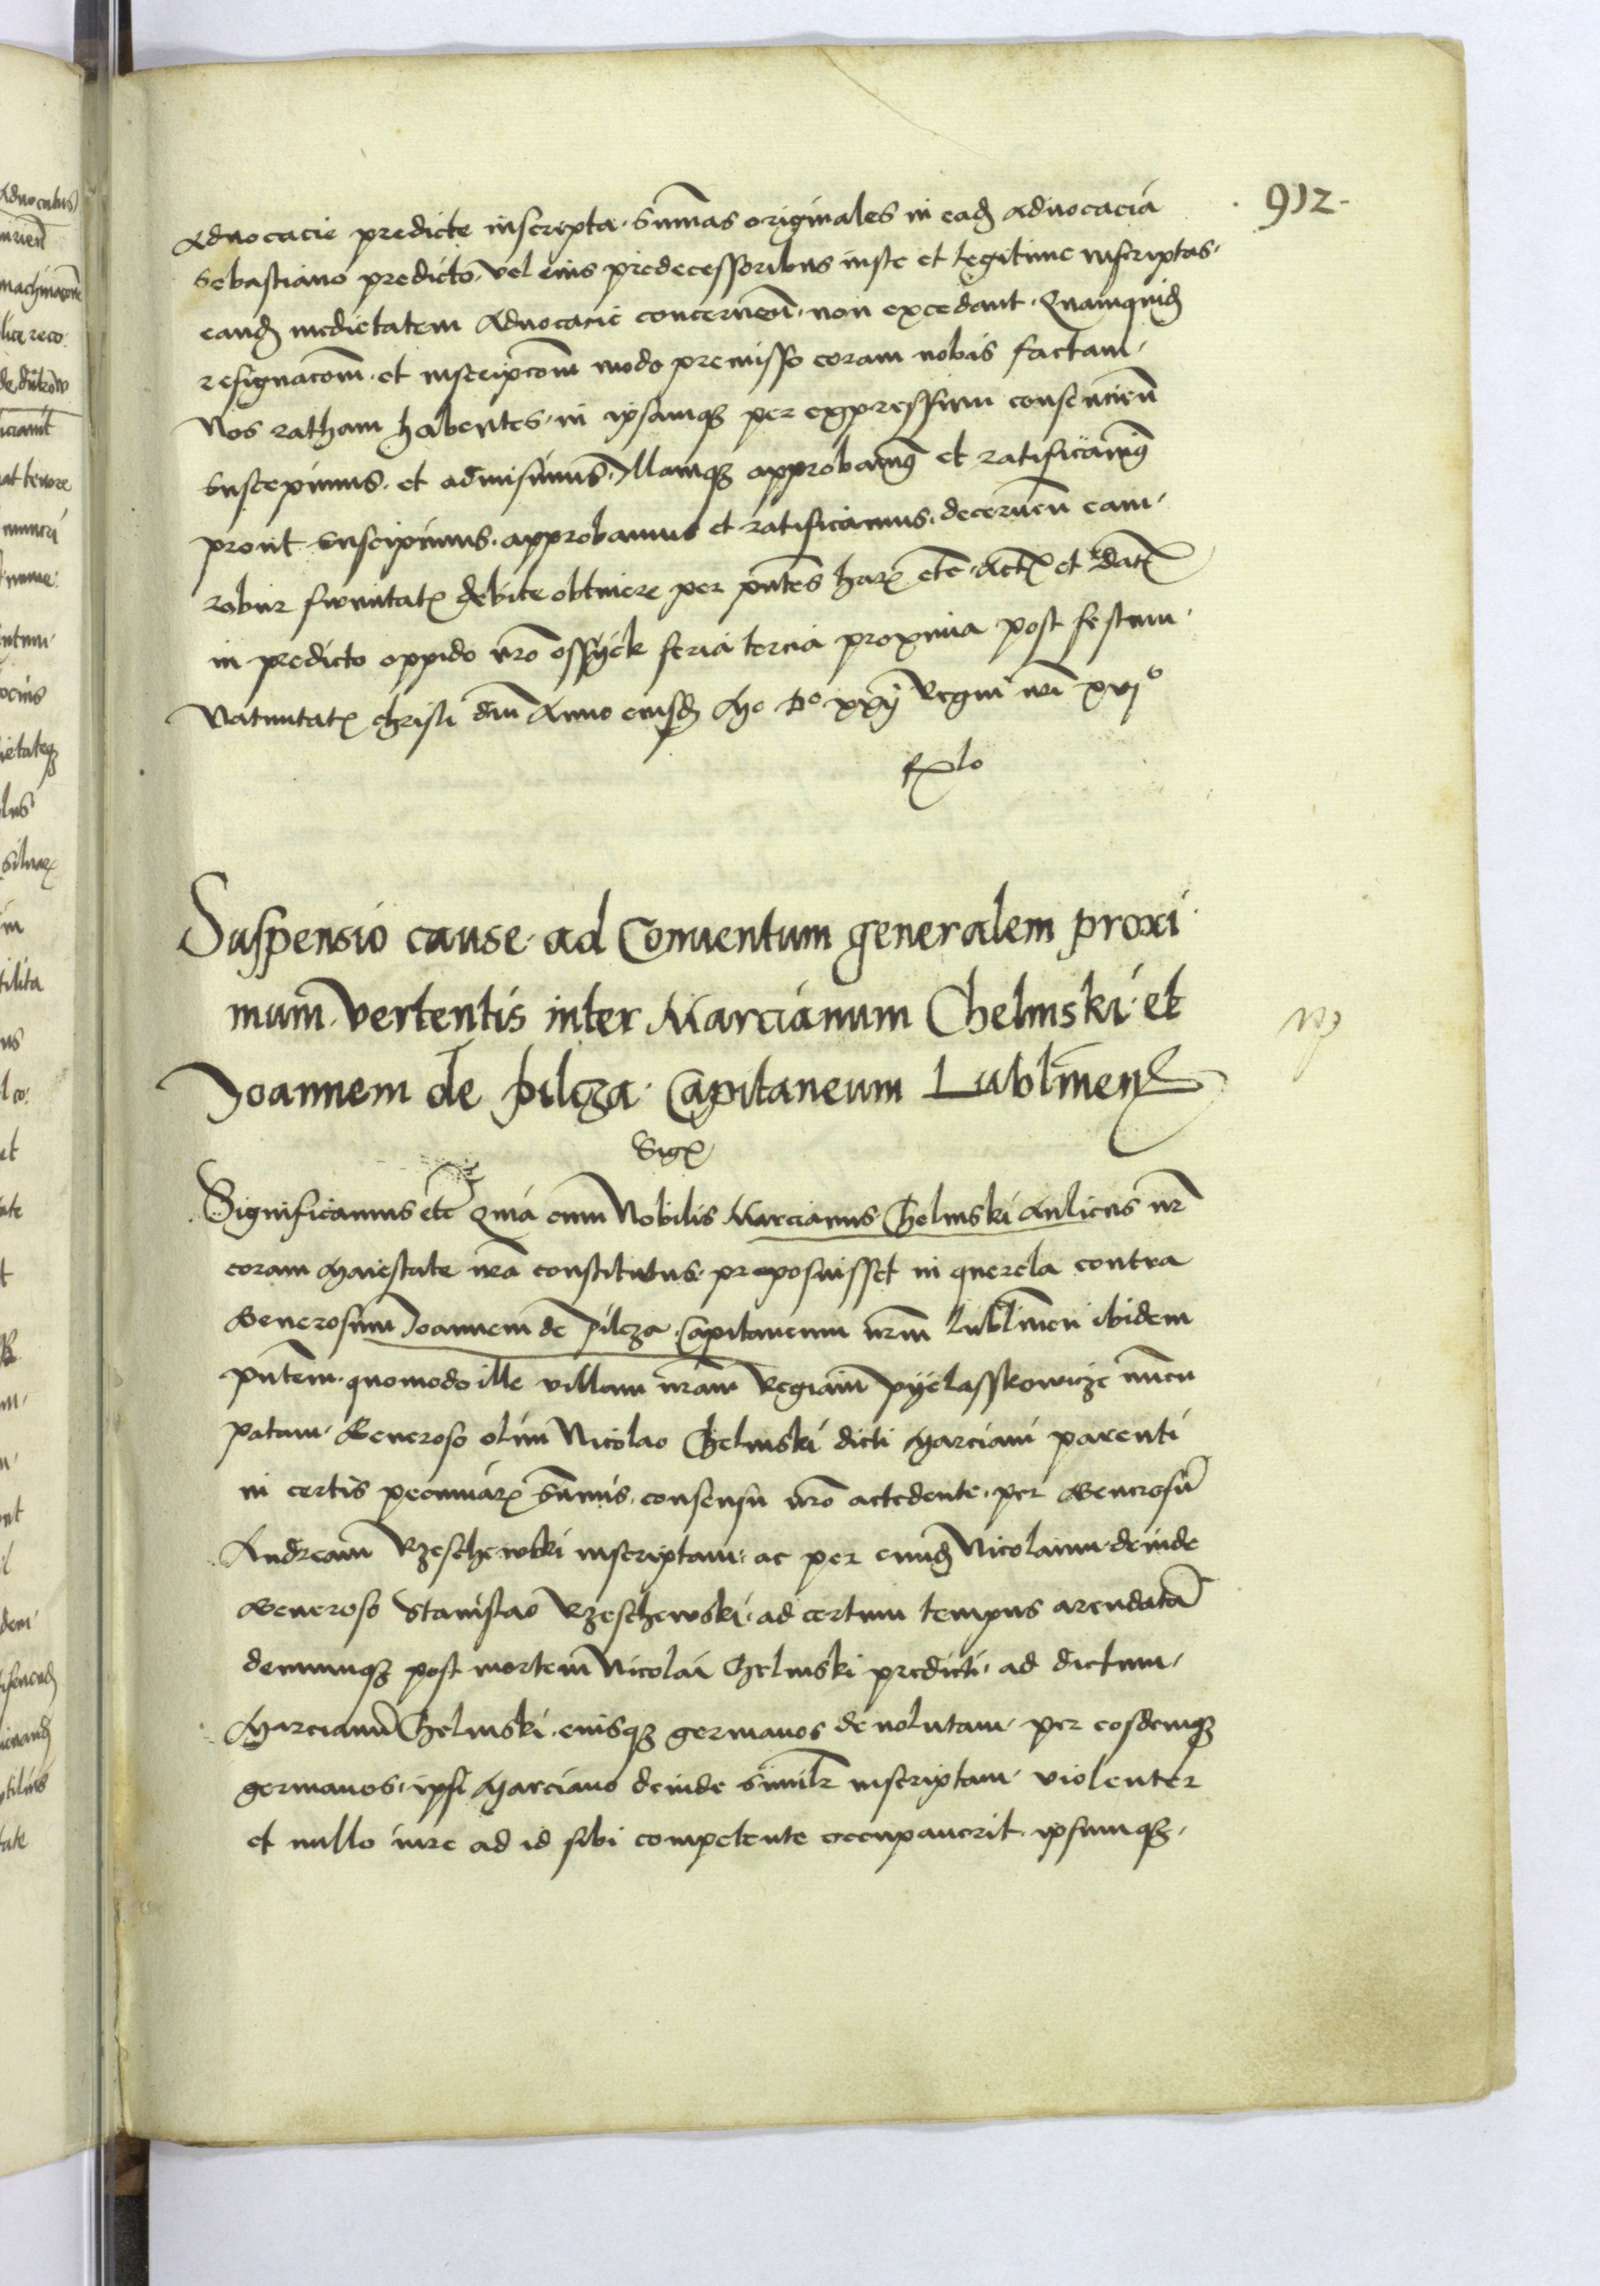 912
Advocacie predicte inscripta. Summas originales in eadem Advocacia
Sebastiano predicto, vel eius predecessoribus iuste et legitime inscriptas.
eandem medietatem Advocacie concernen. non excedant. Quamquidem
resignacom. et inscripcom modo premisso coram nobis factam.
Nos ratham habentes. in ipsamque per expressum consencien
suscepimus. et admisimus. Illamque approbamus et ratificamus
prout suscipimus. approbamus et ratificamus. decernen eam.
robur firmitatis debite obtinere per pntes harum etc. Actum et datum
in predicto oppido nro Ossyek feria tercia proxima post festum.
Nativitatis christi dni Anno eiusdem Mo Do xxij Regni nri xvjo
Rlo
Suspensio cause. ad Conventum generalem proxi
mum. vertentis inter Marcianum Chelmski. et
Joannem de pilcza. Capitaneum Lublinen
Sigis
Significamus etc Quia cum Nobilis Marcianus Chelmski Aulicus nr
coram Maiestate nra constitutus. proposuisset in querela contra
Generosum Joannem de Pilcza. Capitaneum nrm Lublinen ibidem
pntem. quomodo ille villam nram Regiam Pyelasskowicze nuncu
patam. Generoso olim Nicolao Chelmski dicti Marciani parenti
in certis pecuniarum summis. consensu nro accedente. per Generosum
Andream Rzeschewski inscriptam. ac per eundem Nicolaum. deinde
Generoso Stanislao Rzeschewski. ad certum tempus arendatam
demumque post mortem Nicolai Chelmski predicti. ad dictum.
Marcianum Chelmski. eiusque germanos devolutam. per eosdemque
germanos. ipsi Marciano deinde similr inscriptam. violenter
et nullo iure ad id sibi competente occupaverit. ipsumque.